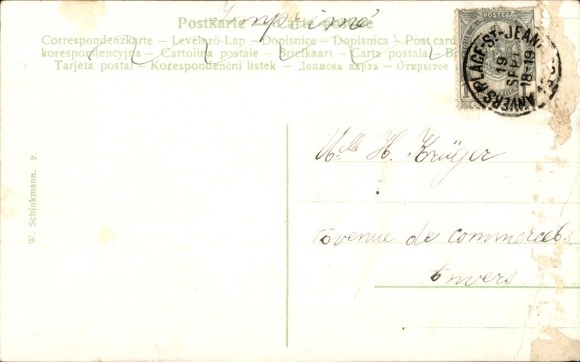 Postkarte – Carte postale
Imprimé
Correspondenzkarte – Levelező-Lap – Dopisnice – Dopisnica – Post card
korespondencyjna – Cartolina postale – Briefkaart – Carta postala –
Tarjeta postal – Korespondenční listek – Дописна карта – Открытое
POSTES
1
ANVERS (PLACE-ST-JEAN)
19
SEPT
18-19
Melle H. Krüger
Avenue de commerce
Anvers
W. Schinkmann. 9.